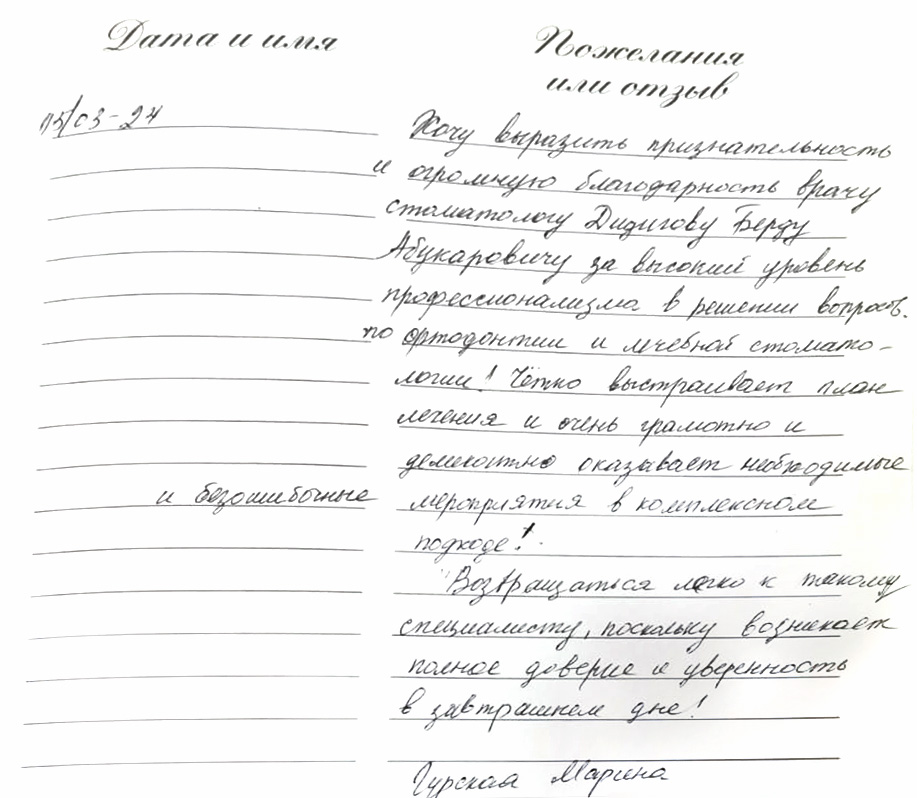 Дата и имя
Пожелания
или отзыв
15/03-24
Хочу выразить признательность
и огромную благодарность врачу
стоматологу Дидигову Берду
Абукаровичу за высокий уровень
профессионализма в решении вопросов.
по ортодонтии и лечебной стомато-
логии! Чётко выстраивает план
лечения и очень грамотно и
деликатно оказывает необходимые
и безошибочные мероприятия в комплексном
подходе!
Возвращаться легко к такому
специалисту, поскольку возникает
полное доверие и уверенность
в завтрашнем дне!
Гурская Марина